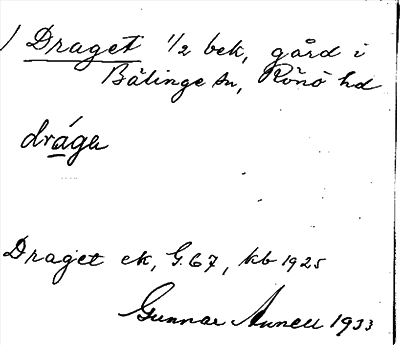 ) Draget 1/2 bek, gård i
Bälinge sn, Rönö hd
drága
Draget ek, G.67, kb 1925
Gunnar Annell 1933